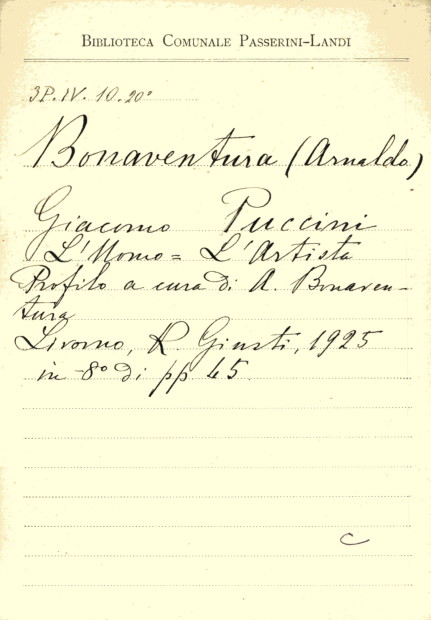 BIBLIOTECA COMUNALE PASSERINI-LANDI
3P. IV. 10. 20°
Bonaventura (Arnaldo)
Giacomo Puccini
L'Uomo = L'Artista
Profilo a cura di A. Bonaven-
tura
Livorno, R. Giusti, 1925
in-8° di pp 45.
C